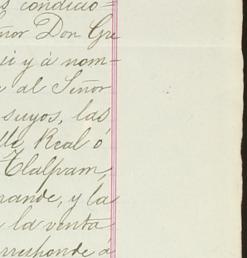 s condicio-
ñor Don Gre
ui y á nom-
e al Señor
suyos, las
lle Real ó
Tlalpam,
rande, y la
a la venta
orresponde á